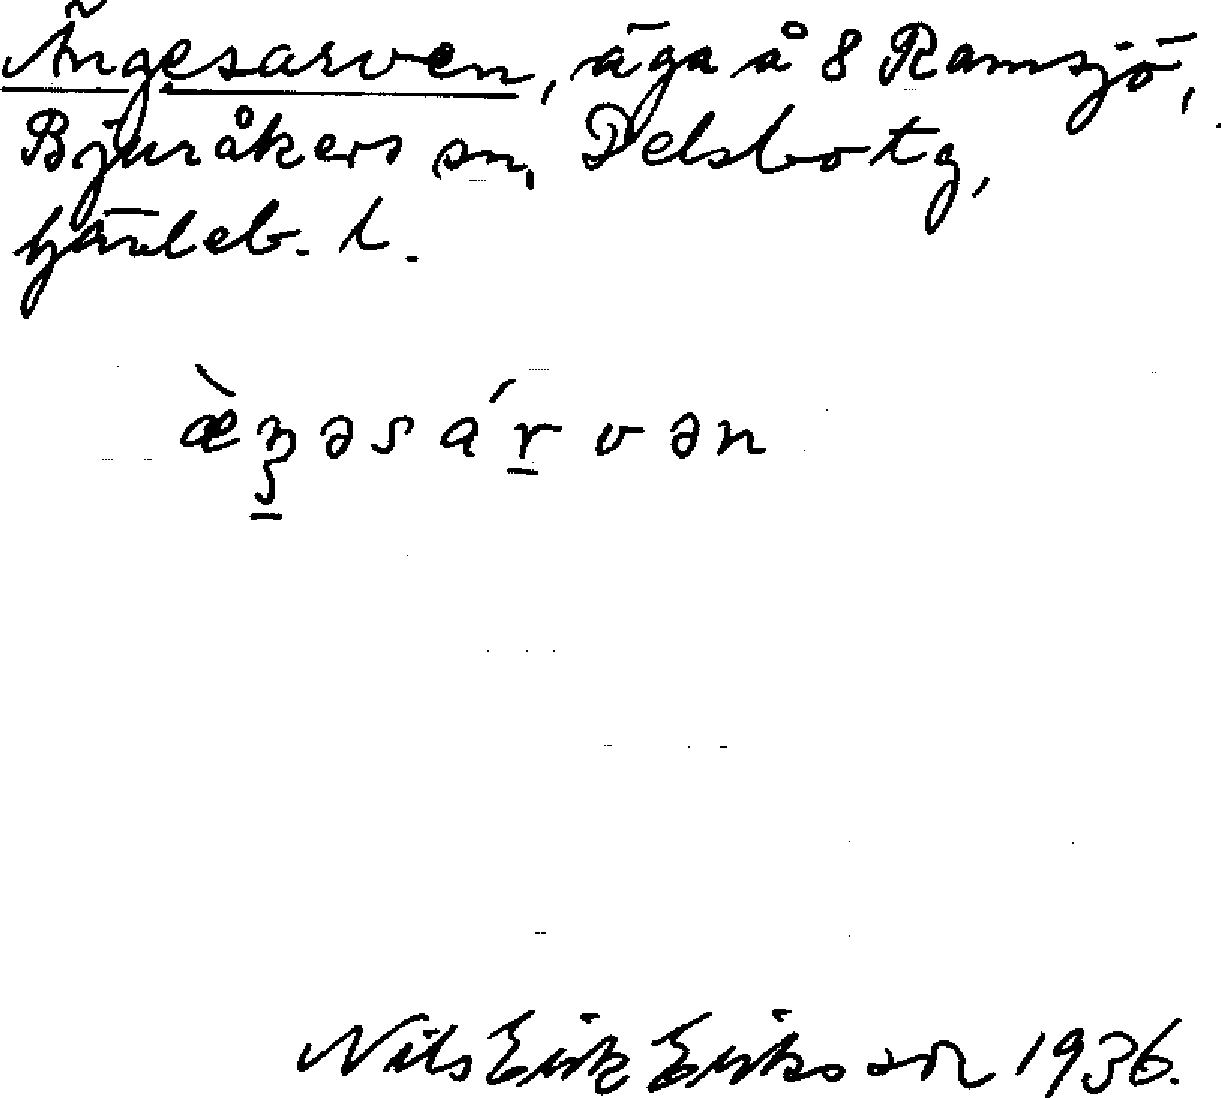 Ängesarven, äga å 8 Ramsjö,
Bjuråkers sn, Delsbo tg,
Gävleb. l.
æ̀ŋəsárvən
Nils Erik Eriksson 1936.